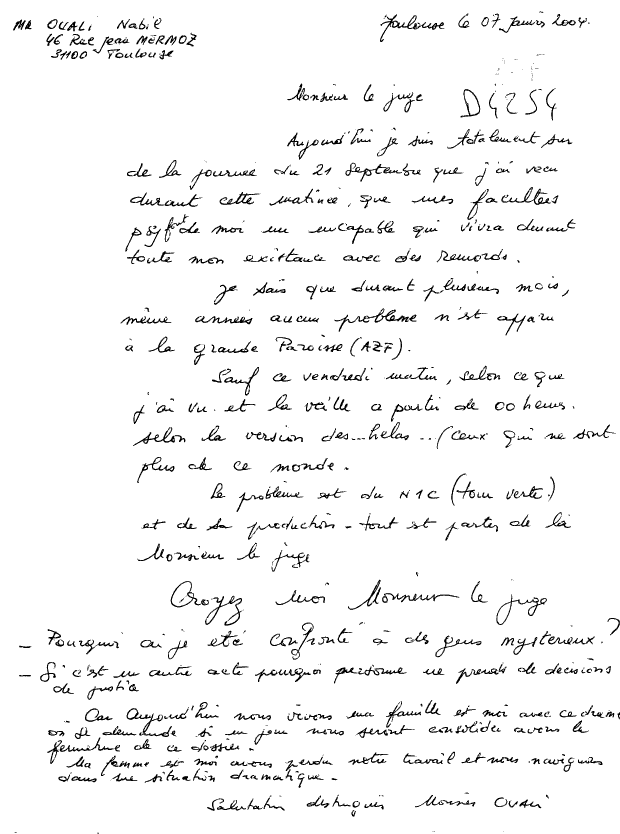 MR OUALI Nabil
46 Rue jean MERMOZ
31100 Toulouse
Toulouse le 07 Janvis 2004.
Monsieur le juge D4254
Aujourd'hui je suis totalement sur
de la journée du 21 Septembre que j'ai vecu
durant cette matinée, que mes facultees
psy font de moi un encapable qui vivra durant
toute mon existance avec des remords.
Je sais que durant plusieurs mois,
même années aucun probleme n'est apparu
à la grande Paroisse (AZF).
Sauf ce vendredi matin, selon ce que
j'ai vu. et la veille a partir de 00 heures.
selon la version des... helas... (ceux qui ne sont
plus de ce monde.
Le problème est du N1C (tour verte.)
et de sa production - tout est partes de là
Monsieur le juge
Croyez moi Monsieur le juge
- Pourquoi ai je eté confronté à des gens mysterieux.?
- Si c'est un autre acte pourquoi personne ne prends de decisions
de justice
- Car Aujourd'hui nous vivons ma famille et moi avec ce drame
on se demande si un jour nous seront consolider avons la
fermeture de ce dossier.
Ma femme et moi avons perdu notre travail et nous naviguons
dans une situation dramatique -
Salutation distingués OUALI